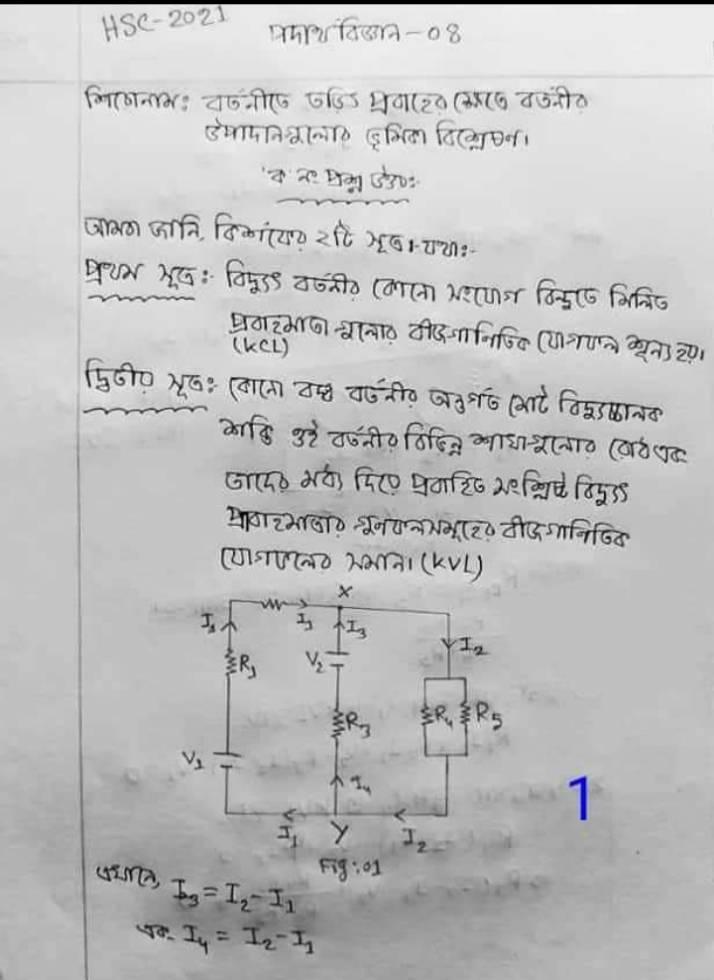 HSC-2021
পদার্থ বিজ্ঞান-০৪
শিরোনাম: বর্তনীতে তড়িৎ প্রবাহের ক্ষেত্রে বর্তনীর
উপাদানগুলোর ভূমিকা বিশ্লেষণ।
'ক' নং প্রশ্ন উত্তর:-
আমরা জানি, কির্শফের ২টি সূত্র। যথা:-
প্রথম সূত্র: বিদ্যুৎ বর্তনীর কোনো সংযোগ বিন্দুতে মিলিত
প্রবাহমাত্রা গুলোর বীজগানিতিক যোগফল শূন্য হয়।
(KCL)
দ্বিতীয় সূত্র: কোনো বদ্ধ বর্তনীর অন্তর্গত মোট বিদ্যুচ্চালক
শক্তি ওই বর্তনীর বিভিন্ন শাখাগুলোর রোধ এবং
তাদের মধ্য দিয়ে প্রবাহিত সংশ্লিষ্ট বিদ্যুৎ
প্রাবাহমাত্রার গুনফলসমূহের বীজগানিতিক
যোগফলের সমান। (KVL)
X
I₁ I₁ I₃
I₂
R₁ V₂
R₃ R₄ R₅
V₁
I₄
I₁ Y I₂
1
Fig:01
এখানে, I₃ = I₂ - I₁
এবং I₄ = I₂ - I₁